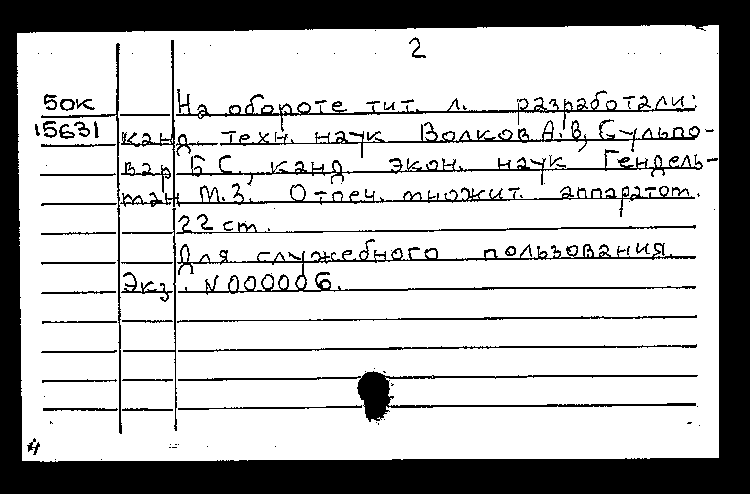 2
50к На обороте тит. л. разработали:
15631 канд. техн. наук Волков А.В, Сульпо-
вар Б С., канд. экон. наук Гендель-
ман М.З. Отпеч. множит. аппаратом.
22 cm.
Для служебного пользования.
Экз. N 000006.
4